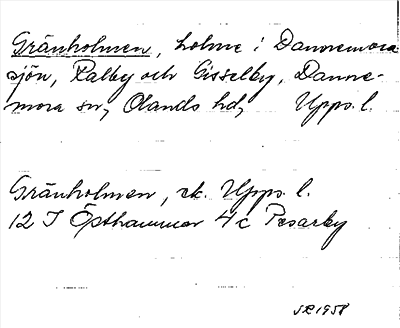 Gränholmen, holme i Dannemora
sjön, Ralby och Gisselby, Danne-
mora sn, Olands hd, Upps. l.
Gränholmen, ek. Upps. l.
12 I Östhammar 4 c Prsarby
SR 1958